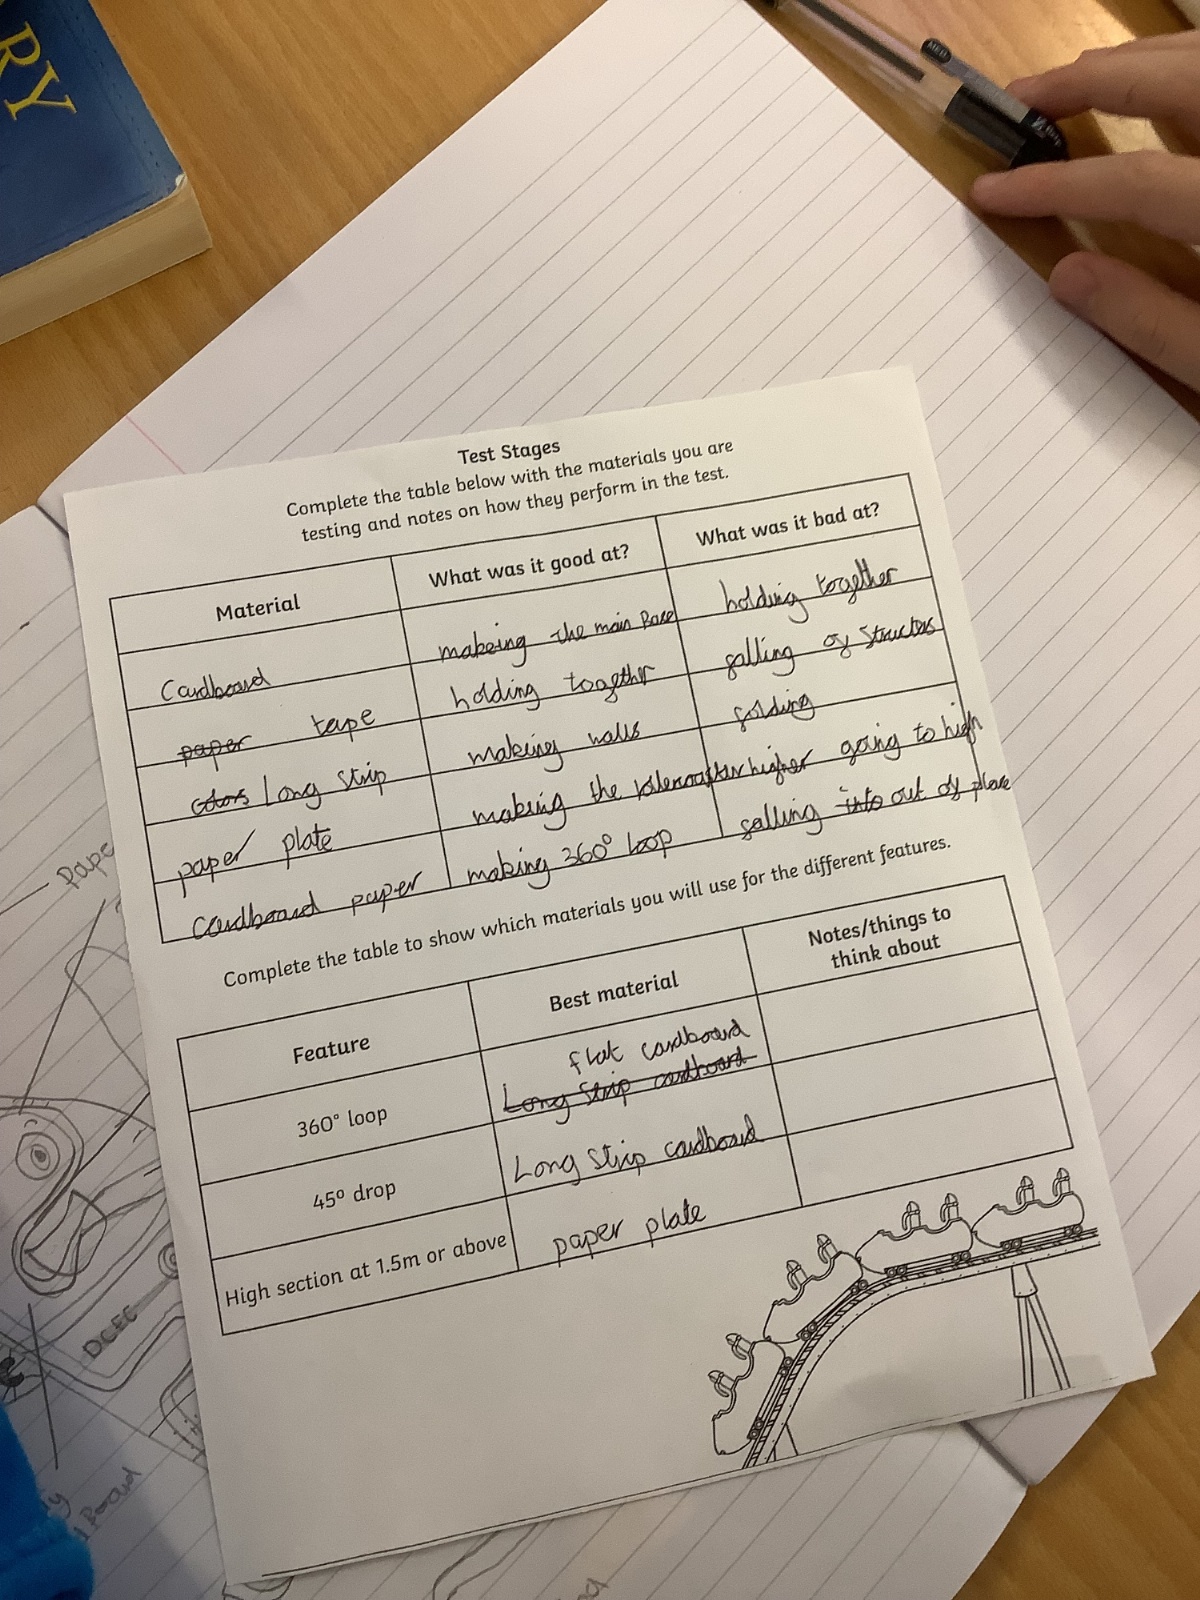 RY
Test Stages
Complete the table below with the materials you are
testing and notes on how they perform in the test.
Material
What was it good at?
What was it bad at?
Cardboard
makeing the main Base
holding together
paper tape
holding together
falling of Structers
Long Strip
making walls
folding
paper plate
making the higher going to high
cardboard paper
making 360° loop
falling into out of place
Complete the table to show which materials you will use for the different features.
Feature
Best material
Notes/things to
think about
360° loop
flat cardboard
Long Strip cardboard
45° drop
Long Strip cardboard
High section at 1.5m or above
paper plate